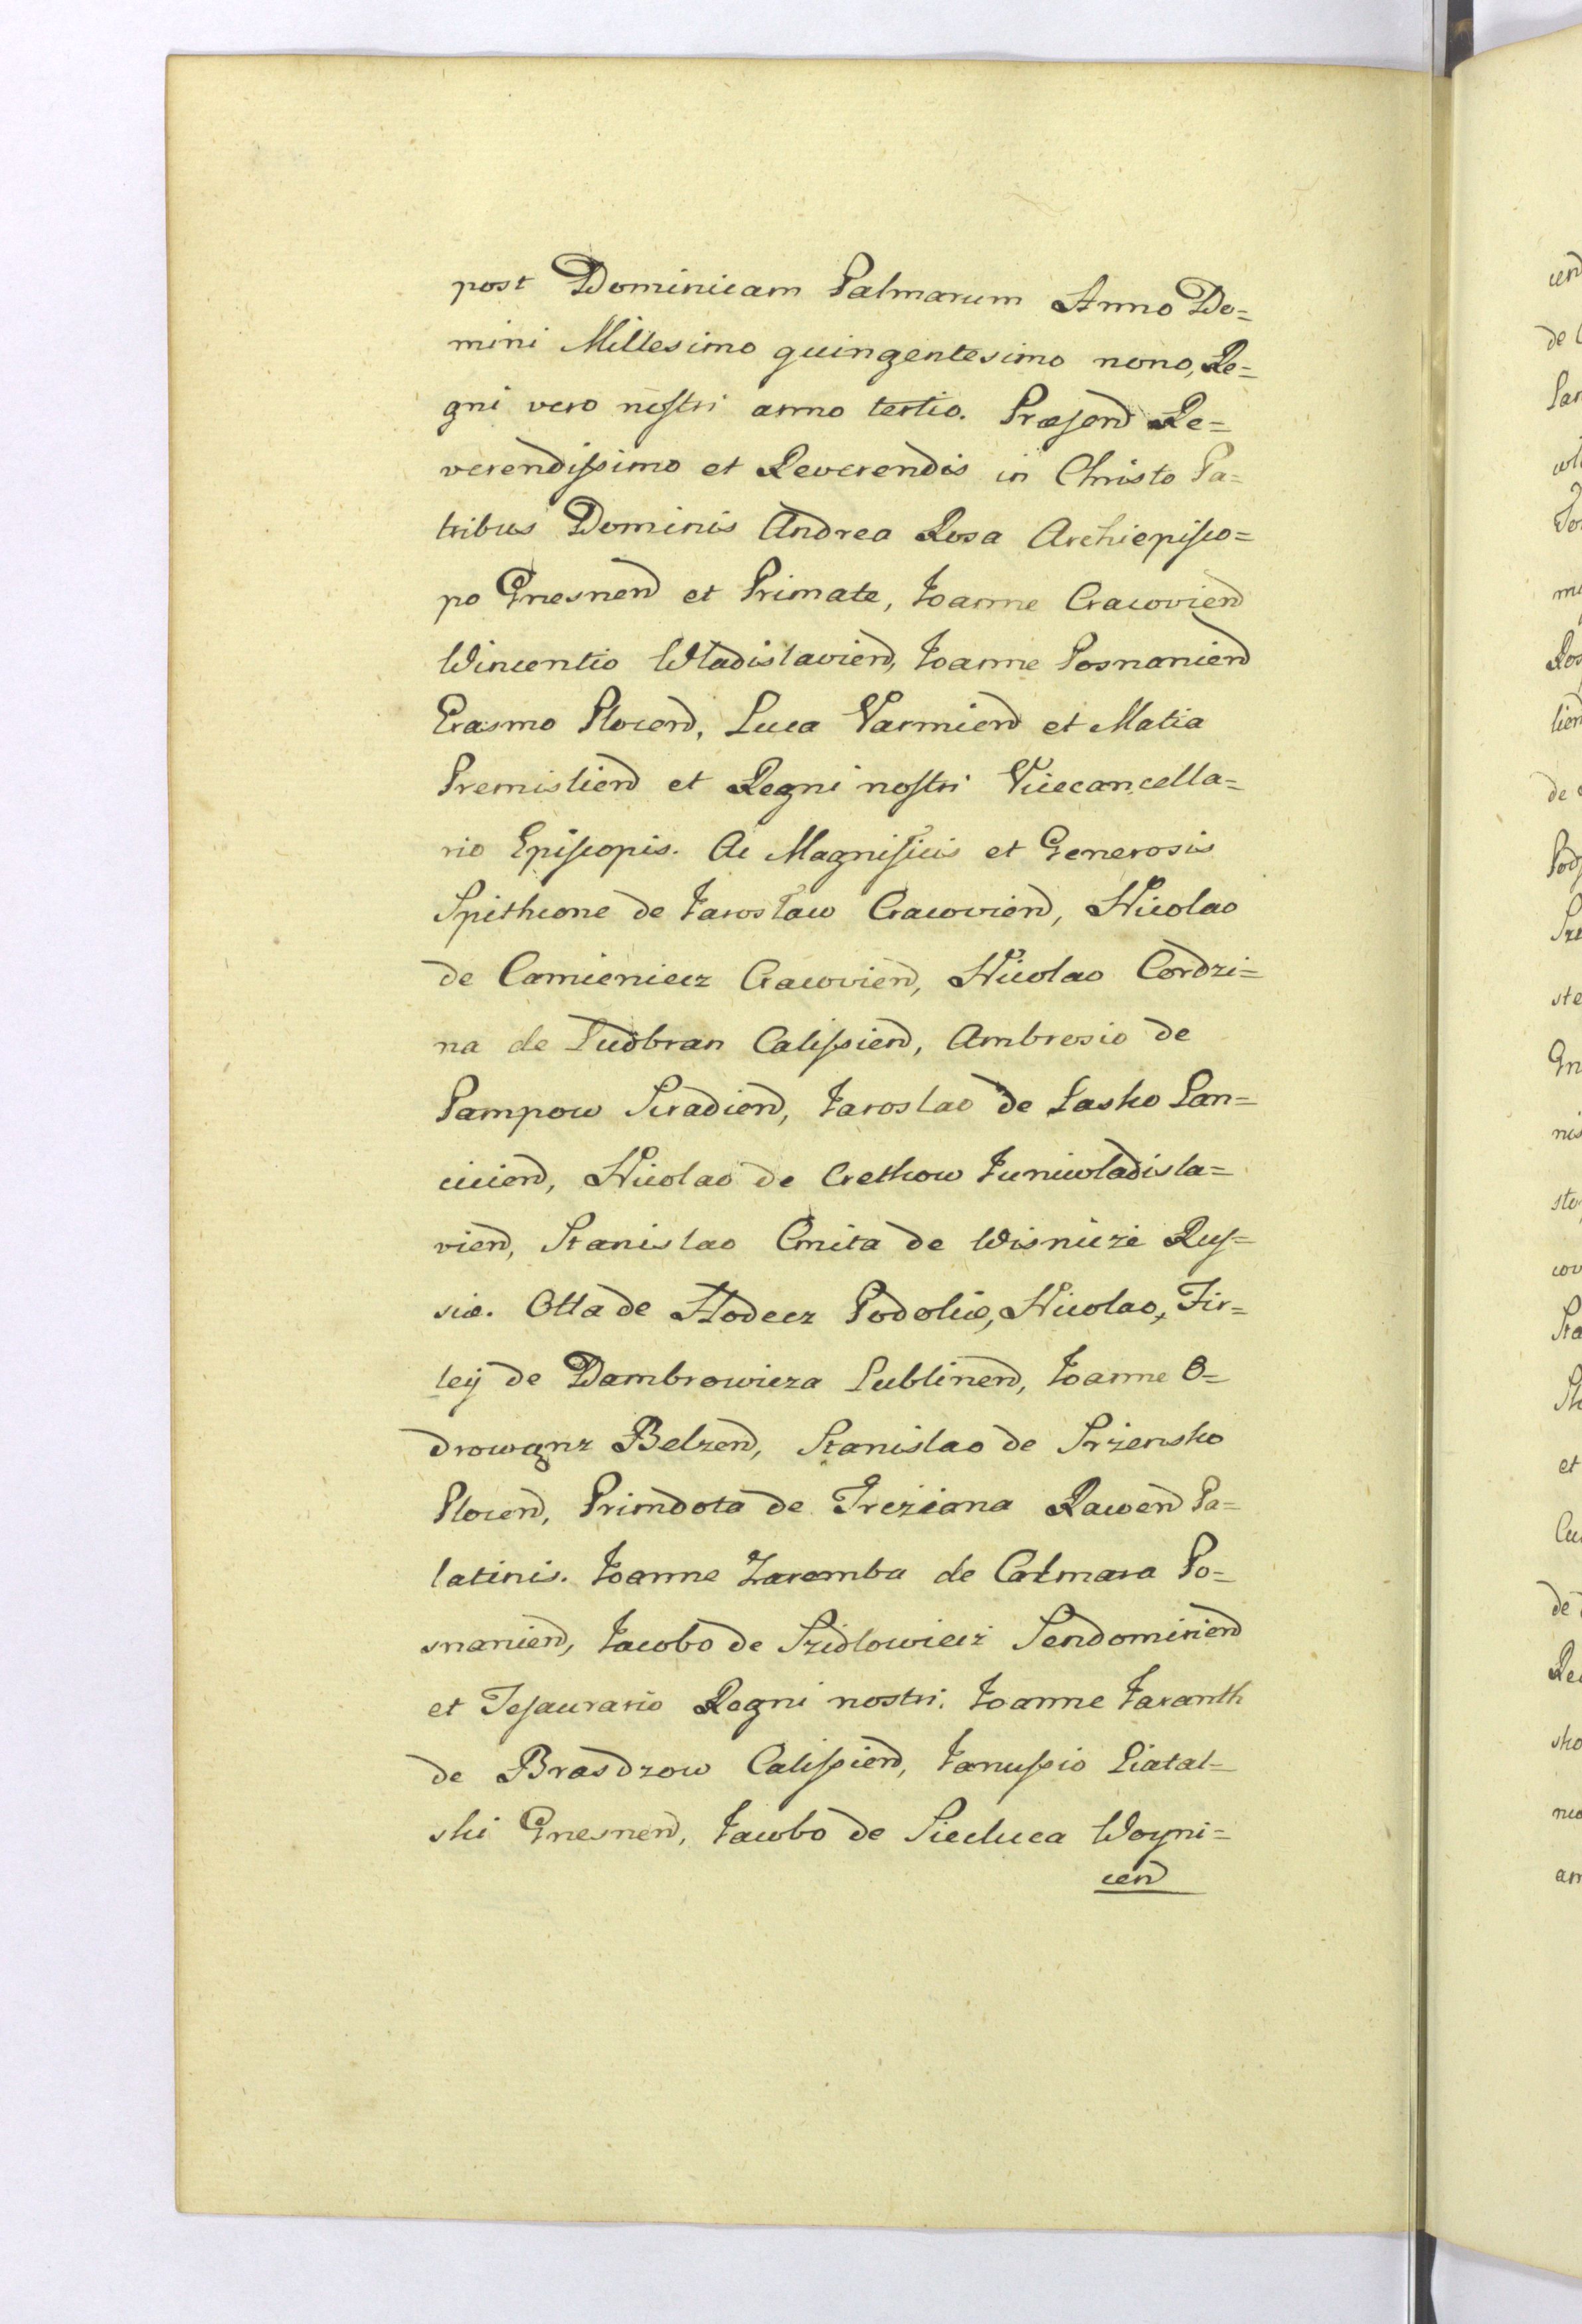 post Dominicam Palmarum Anno Do=
mini Millesimo quingentesimo nono, Re=
gni vero nostri anno tertio. Præsend Re=
verendissimo et Reverendis in Christo Pa=
tribus Dominis Andrea Rosa Archiepisco=
po Gnesnend et Primate, Joanne Cracoviend
Wincentio Wladislaviend, Joanne Posnaniend
Erasmo Plocend, Luca Varmiend et Matia
Premisliend et Regni nostri Vicecancella=
rio Episcopis. Ac Magnificis et Generosis
Spithcone de Jarosław Cracoviend, Nicolao
de Camieniecz Cracoviend, Nicolao Cordzi=
na de Ludbran Calissiend, Ambrosio de
Pampow Siradiend, Jaroslao de Lasko Lan=
ciciend, Nicolao de Crethow Juniwladisla=
viend, Stanislao Cmita de Wisnicze Rus=
siæ. Otta de Hodecz Podoliæ, Nicolao, Fir=
leÿ de Dambrowicza Lublinend, Joanne O=
drowąnz Belzend, Stanislao de Srzensko
Plocend, Primdota de Treziana Rawend Pa=
latinis. Joanne Zaremba de Calmara Po=
snaniend, Jacobo de Szidlowiecz Sendomiriend
et Tesaurario Regni nostri. Joanne Jaranth
de Brasdzow Calissiend, Janussio Liatal=
ski Gnesnend, Jacobo de Siecluca Woyni=
cend